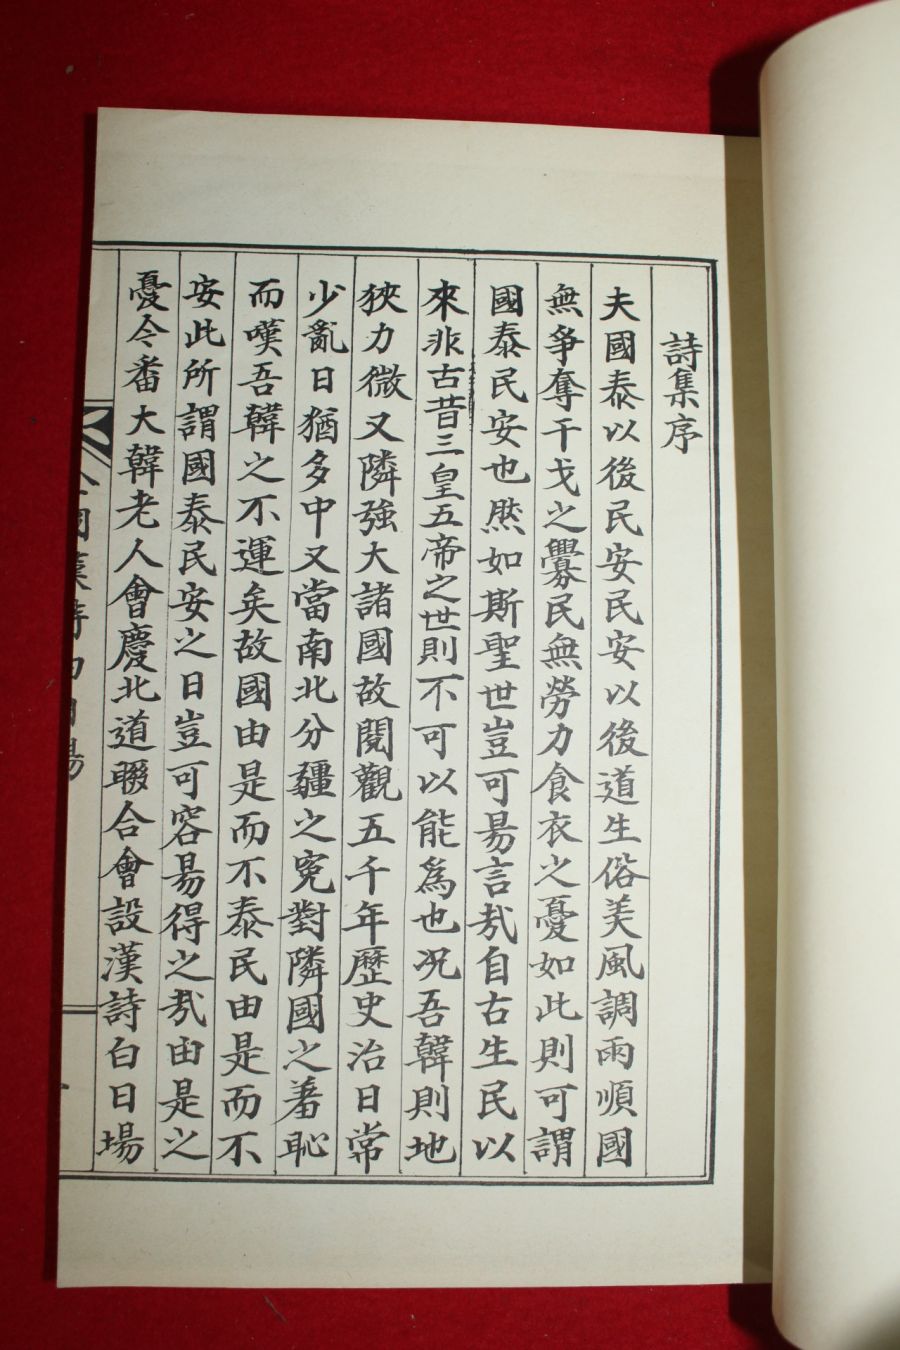 詩集序
夫國泰以後民安民安以後道生俗美風調雨順國
無爭奪干戈之釁民無勞力食衣之憂如此則可謂
國泰民安也然如斯聖世豈可易言哉自古生民以
來非古昔三皇五帝之世則不可以能爲也况吾韓則地
狹力微又隣強大諸國故閱觀五千年歷史治日常
少亂日猶多中又當南北分疆之冤對隣國之羞恥
而嘆吾韓之不運矣故國由是而不泰民由是而不
安此所謂國泰民安之日豈可容易得之哉由是之
憂令番大韓老人會慶北道聯合會設漢詩白日場
國漢詩白日場